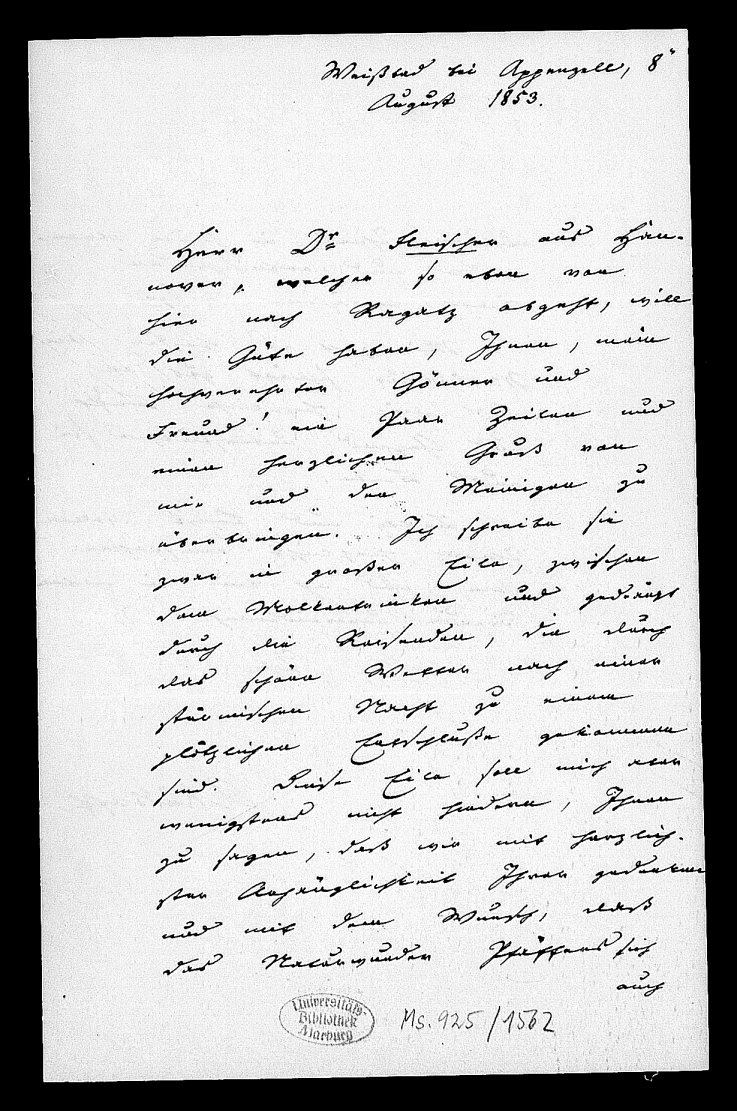 Weißbad bei Appenzell, 8"
August 1853.
Herr Dr. Fleischer aus Han-
nover, welcher so eben von
hier nach Ragatz abgeht, will
die Güte haben, Ihnen, mein
hochverehrter Gönner und
Freund! ein Paar Zeilen und
einen herzlichen Gruß von
mir und den Meinigen zu
überbringen. Ich schreibe sie
zwar in großer Eile, zwischen
dem Molkentrinken und gedrängt
durch die Reisenden, die durch
das schöne Wetter nach einer
stürmischen Nacht zu einem
plötzlichen Entschluße gekommen
sind. Diese Eile soll mich aber
wenigstens nicht hindern, Ihnen
zu sagen, daß wir mit herzlich-
ster Anhänglichkeit Ihrer gedenken
und mit dem Wunsch, daß
das Naturwunder Pfäffers sich
auch
Universitäts-
Bibliothek
Marburg
Ms. 925/1562